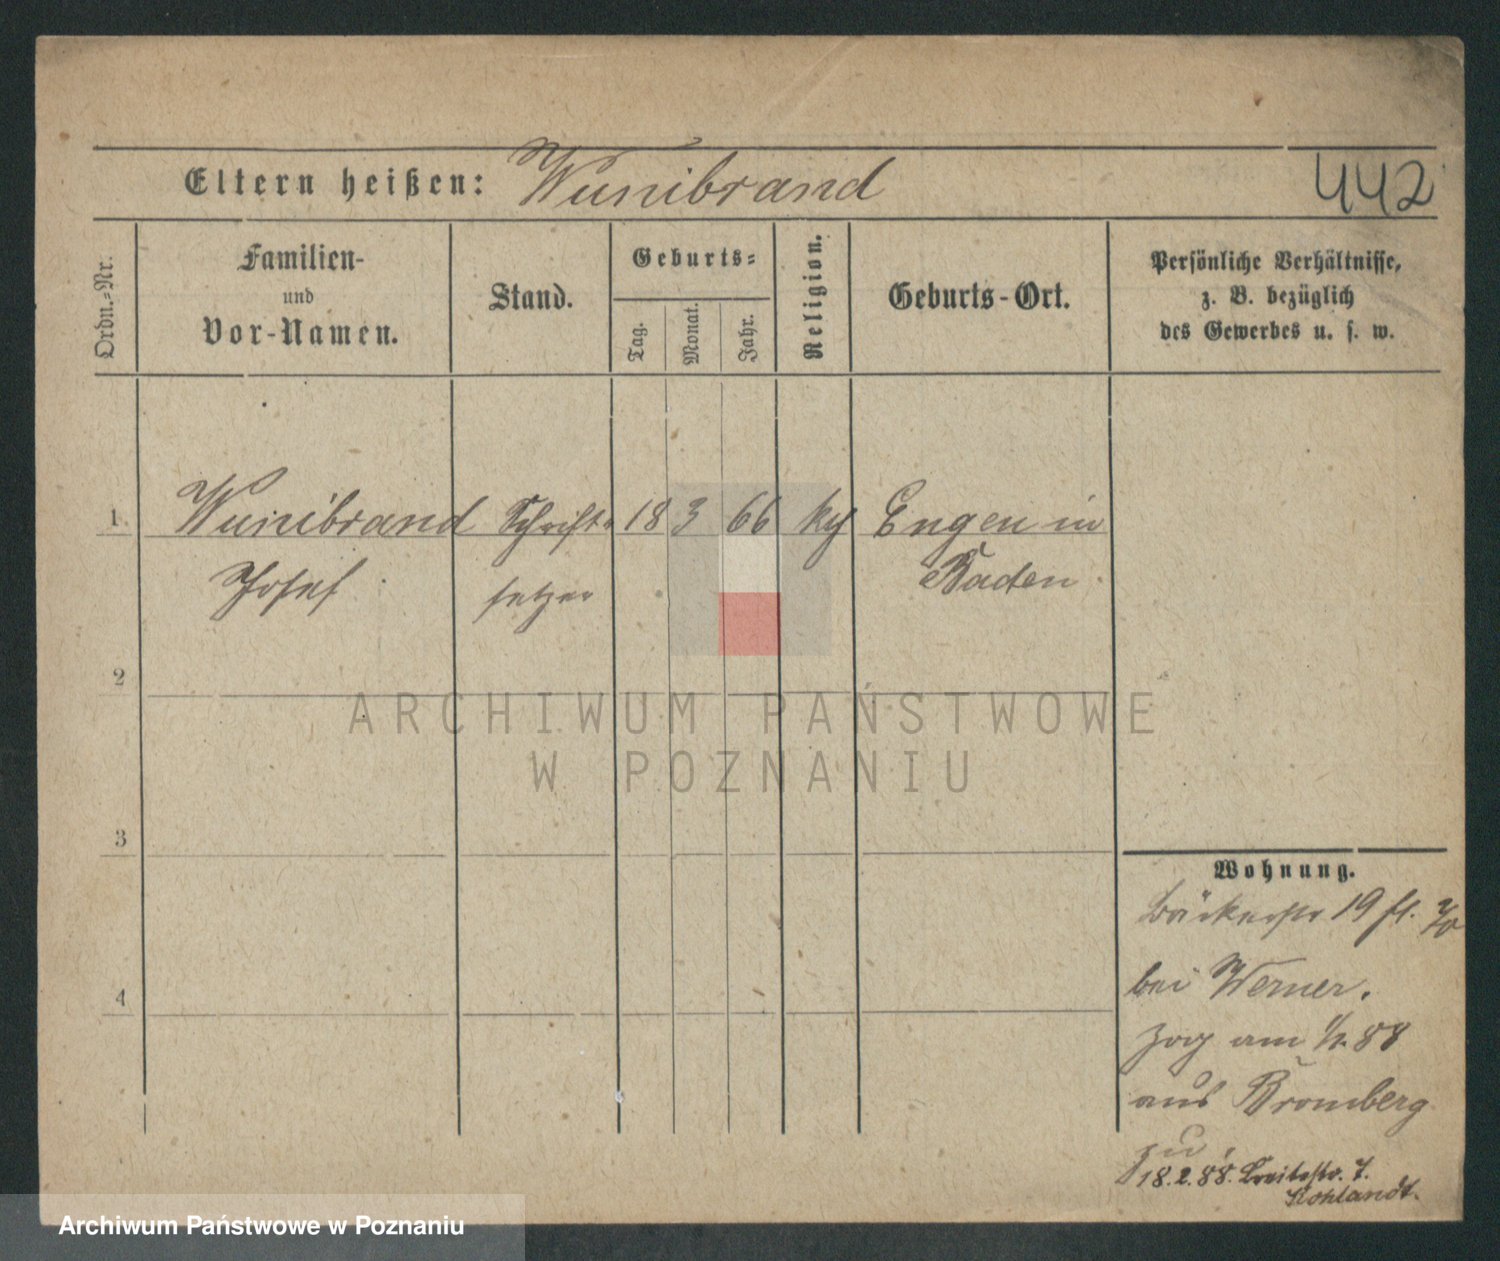 Eltern heißen: Wunibrand
442
Ordn.-Nr.
Familien-
und
Vor-Namen.
Stand.
Geburts-
Tag.
Monat.
Jahr.
Religion.
Geburts-Ort.
Persönliche Verhältnisse,
z. B. bezüglich
des Gewerbes u. s. w.
1. Wunibrand Schrift- 18 3 66 Engen in
Josef setzer Baden
2
ARCHIWUM PAŃSTWOWE
W POZNANIU
3
Wohnung.
Bäckerstr 19
bei Werner.
zog am 88
aus Bromberg
zu
18.2.88. Breitestr. 7.
Kohlandt.
4
Archiwum Państwowe w Poznaniu